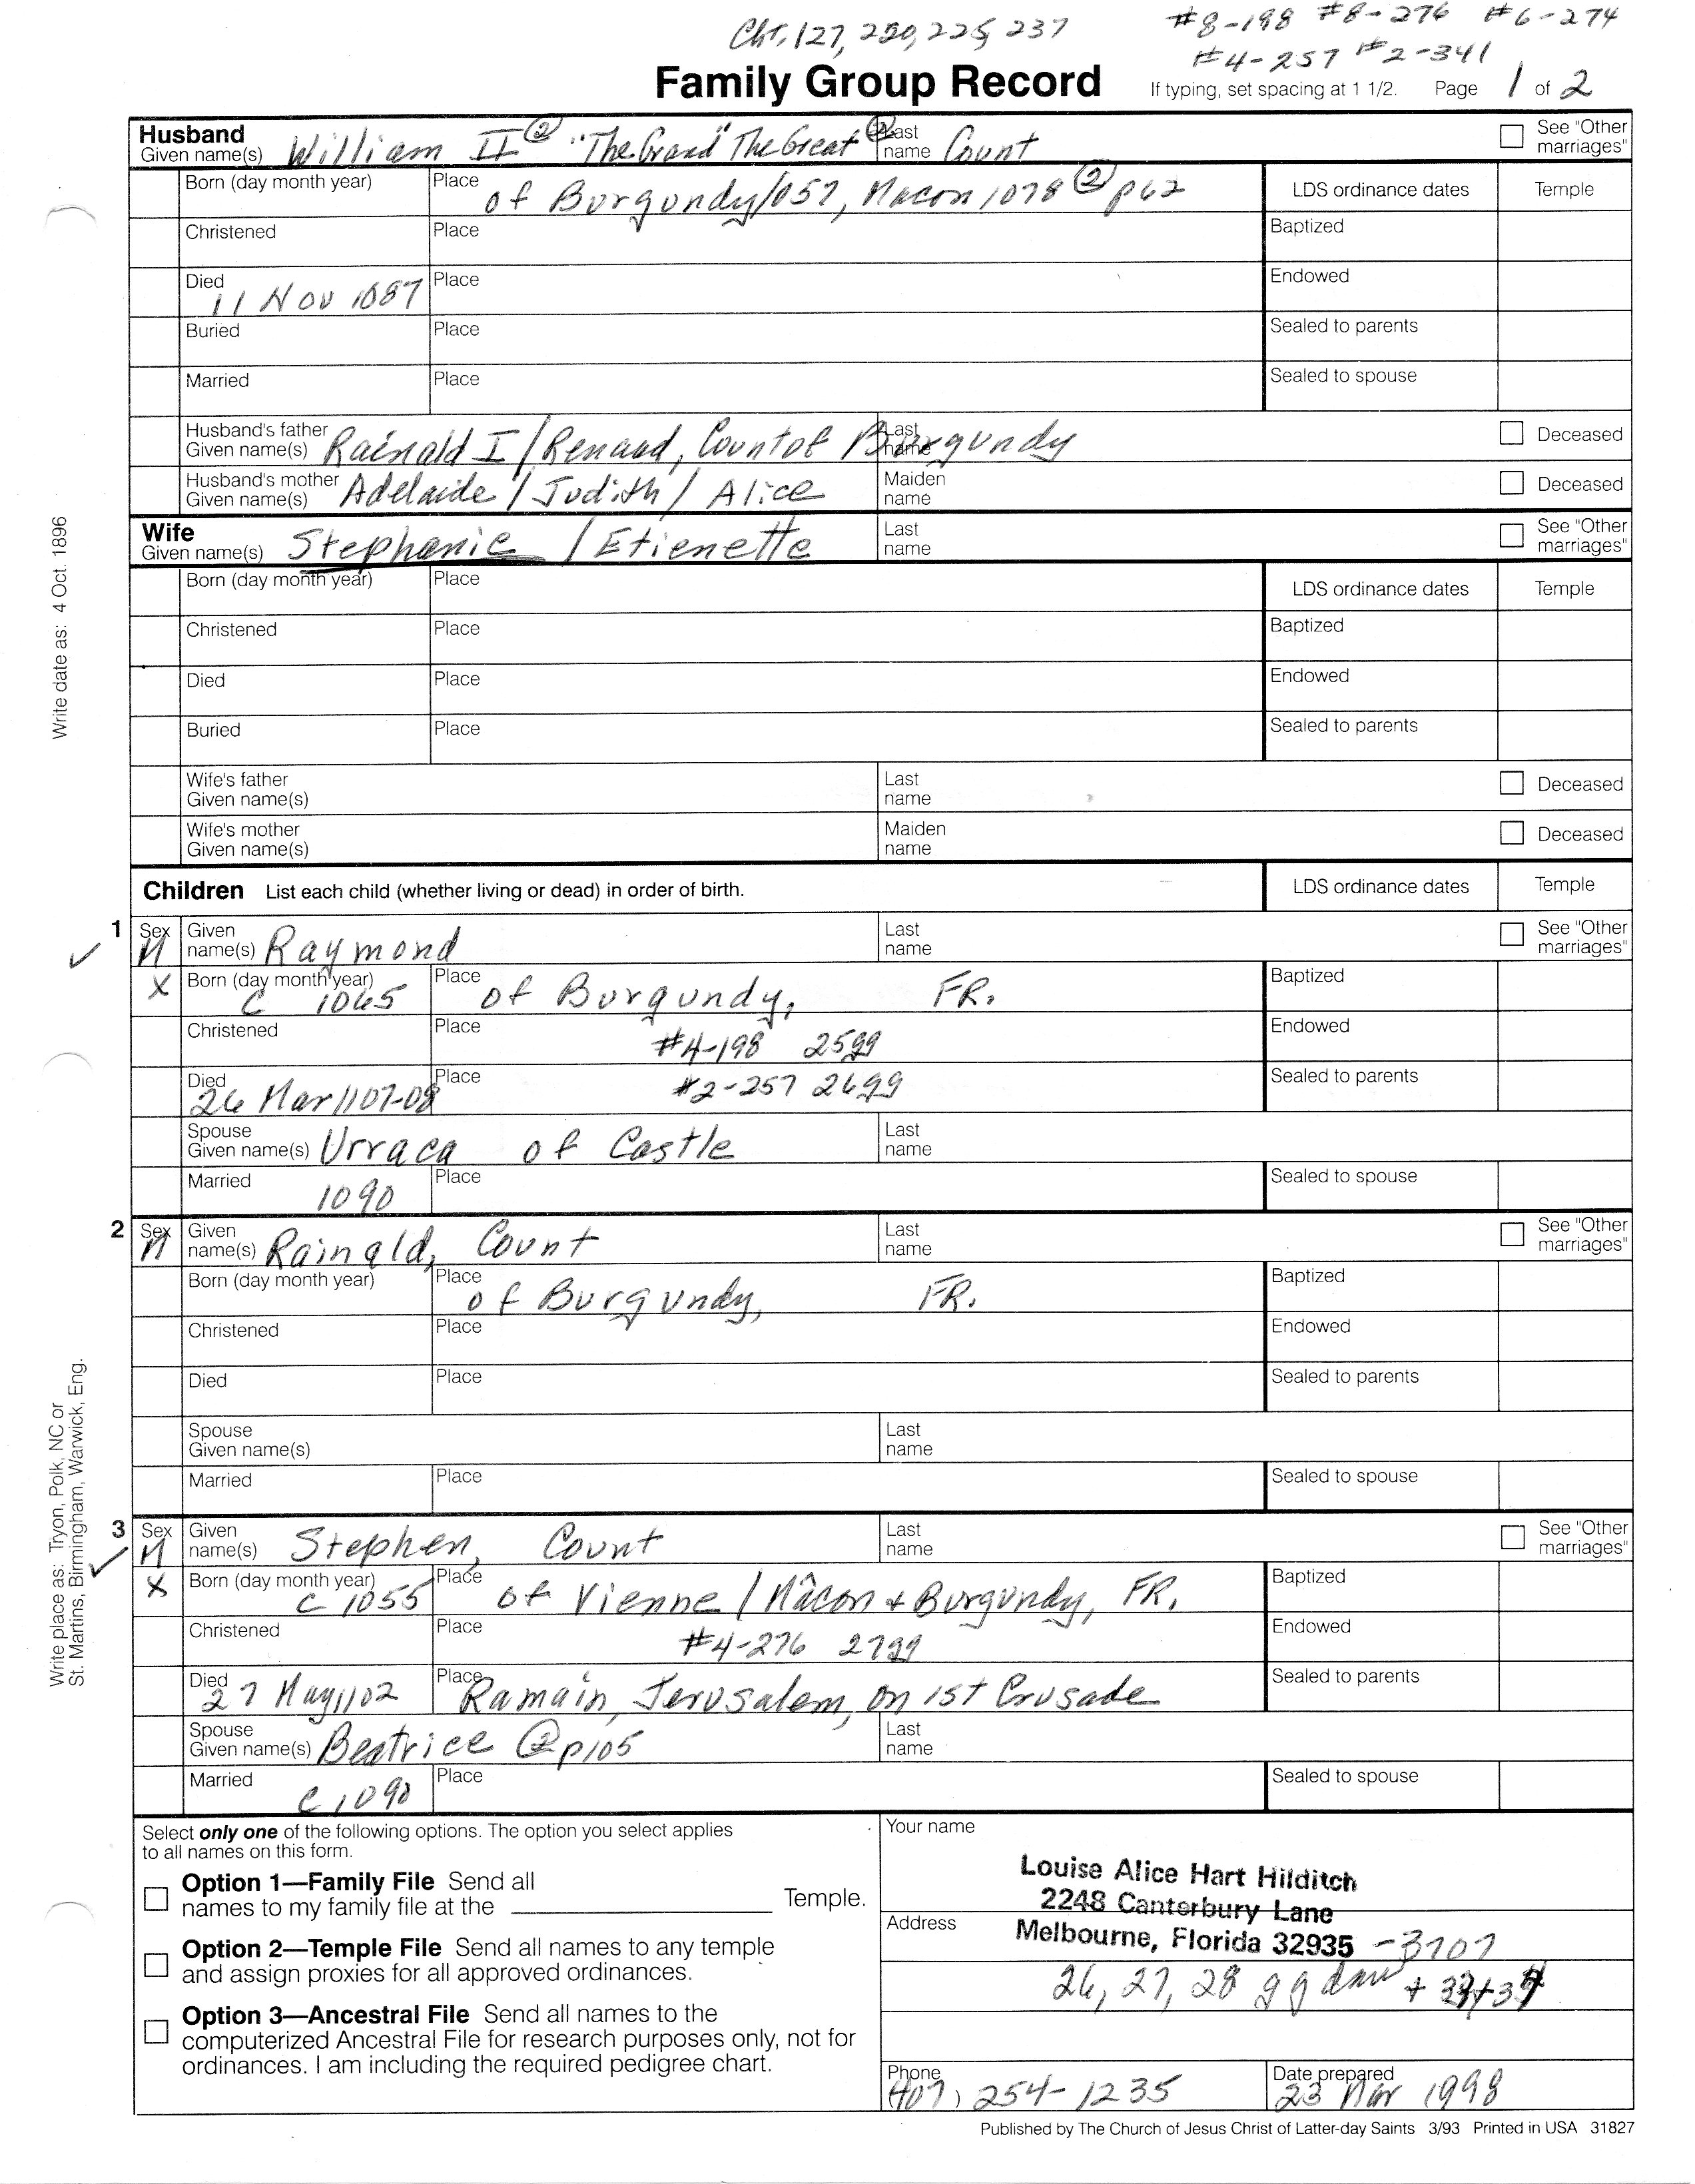 Cht, 127, 220, 225, 237 #8-198 #8-276 #6-274
#4-257 #2-341
Family Group Record If typing, set spacing at 1 1/2. Page 1 of 2
Husband
Given name(s) William II ② "The Grand" The Great ② Last name Count See "Other marriages"
Born (day month year) Place of Burgundy 1057, Macon 1078 ② p62 LDS ordinance dates Temple
Christened Place Baptized
Died 11 Nov 1087 Place Endowed
Buried Place Sealed to parents
Married Place Sealed to spouse
Husband's father Given name(s) Rainald I / Renaud, Count of Burgundy Last name Deceased
Husband's mother Given name(s) Adelaide / Judith / Alice Maiden name Deceased
Wife
Given name(s) Stephanie / Etienette Last name See "Other marriages"
Born (day month year) Place LDS ordinance dates Temple
Christened Place Baptized
Died Place Endowed
Buried Place Sealed to parents
Wife's father Given name(s) Last name Deceased
Wife's mother Given name(s) Maiden name Deceased
Children List each child (whether living or dead) in order of birth. LDS ordinance dates Temple
1 Sex M Given name(s) Raymond Last name See "Other marriages"
X Born (day month year) C 1065 Place of Burgundy, FR. Baptized
Christened Place #4-198 25gg Endowed
Died 26 Mar 1107-08 Place #2-257 26gg Sealed to parents
Spouse Given name(s) Urraca of Castle Last name
Married 1090 Place Sealed to spouse
2 Sex M Given name(s) Rainald, Count Last name See "Other marriages"
Born (day month year) Place of Burgundy, FR. Baptized
Christened Place Endowed
Died Place Sealed to parents
Spouse Given name(s) Last name
Married Place Sealed to spouse
3 Sex M Given name(s) Stephen, Count Last name See "Other marriages"
X Born (day month year) C 1055 Place of Vienne / Mâcon + Burgundy, FR. Baptized
Christened Place #4-276 27gg Endowed
Died 27 May 1102 Place Ramain, Jerusalem, on 1st Crusade Sealed to parents
Spouse Given name(s) Beatrice ② p105 Last name
Married C 1090 Place Sealed to spouse
Write date as: 4 Oct. 1896
Write place as: Tryon, Polk, NC or
St. Martins, Birmingham, Warwick, Eng.
Select only one of the following options. The option you select applies
to all names on this form.
Option 1—Family File Send all
names to my family file at the Temple.
Option 2—Temple File Send all names to any temple
and assign proxies for all approved ordinances.
Option 3—Ancestral File Send all names to the
computerized Ancestral File for research purposes only, not for
ordinances. I am including the required pedigree chart.
Your name
Louise Alice Hart Hilditch
2248 Canterbury Lane
Address
Melbourne, Florida 32935 -3707
26, 27, 28 gg dau +
Phone 407) 254-1235 Date prepared 23 Mar 1998
Published by The Church of Jesus Christ of Latter-day Saints 3/93 Printed in USA 31827